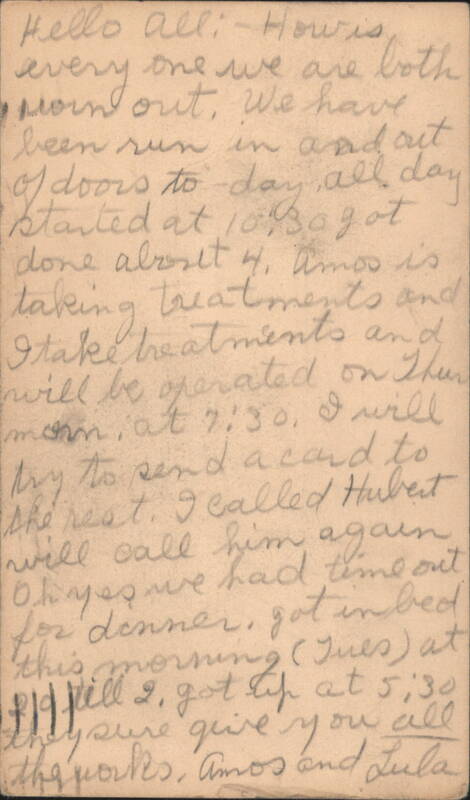 Hello All:- How is
every one we are both
worn out. We have
been run in and out
of doors to-day, all day
started at 10:30 got
done about 4. Amos is
taking treatments and
I take treatments and
will be operated on Thur
morn. at 7:30. I will
try to send a card to
the rest. I called Hubert
will call him again
Oh yes we had time out
for dinner. got in bed
this morning (Tues) at
till 2. got up at 5:30
they sure give you all
the works. Amos and Lula